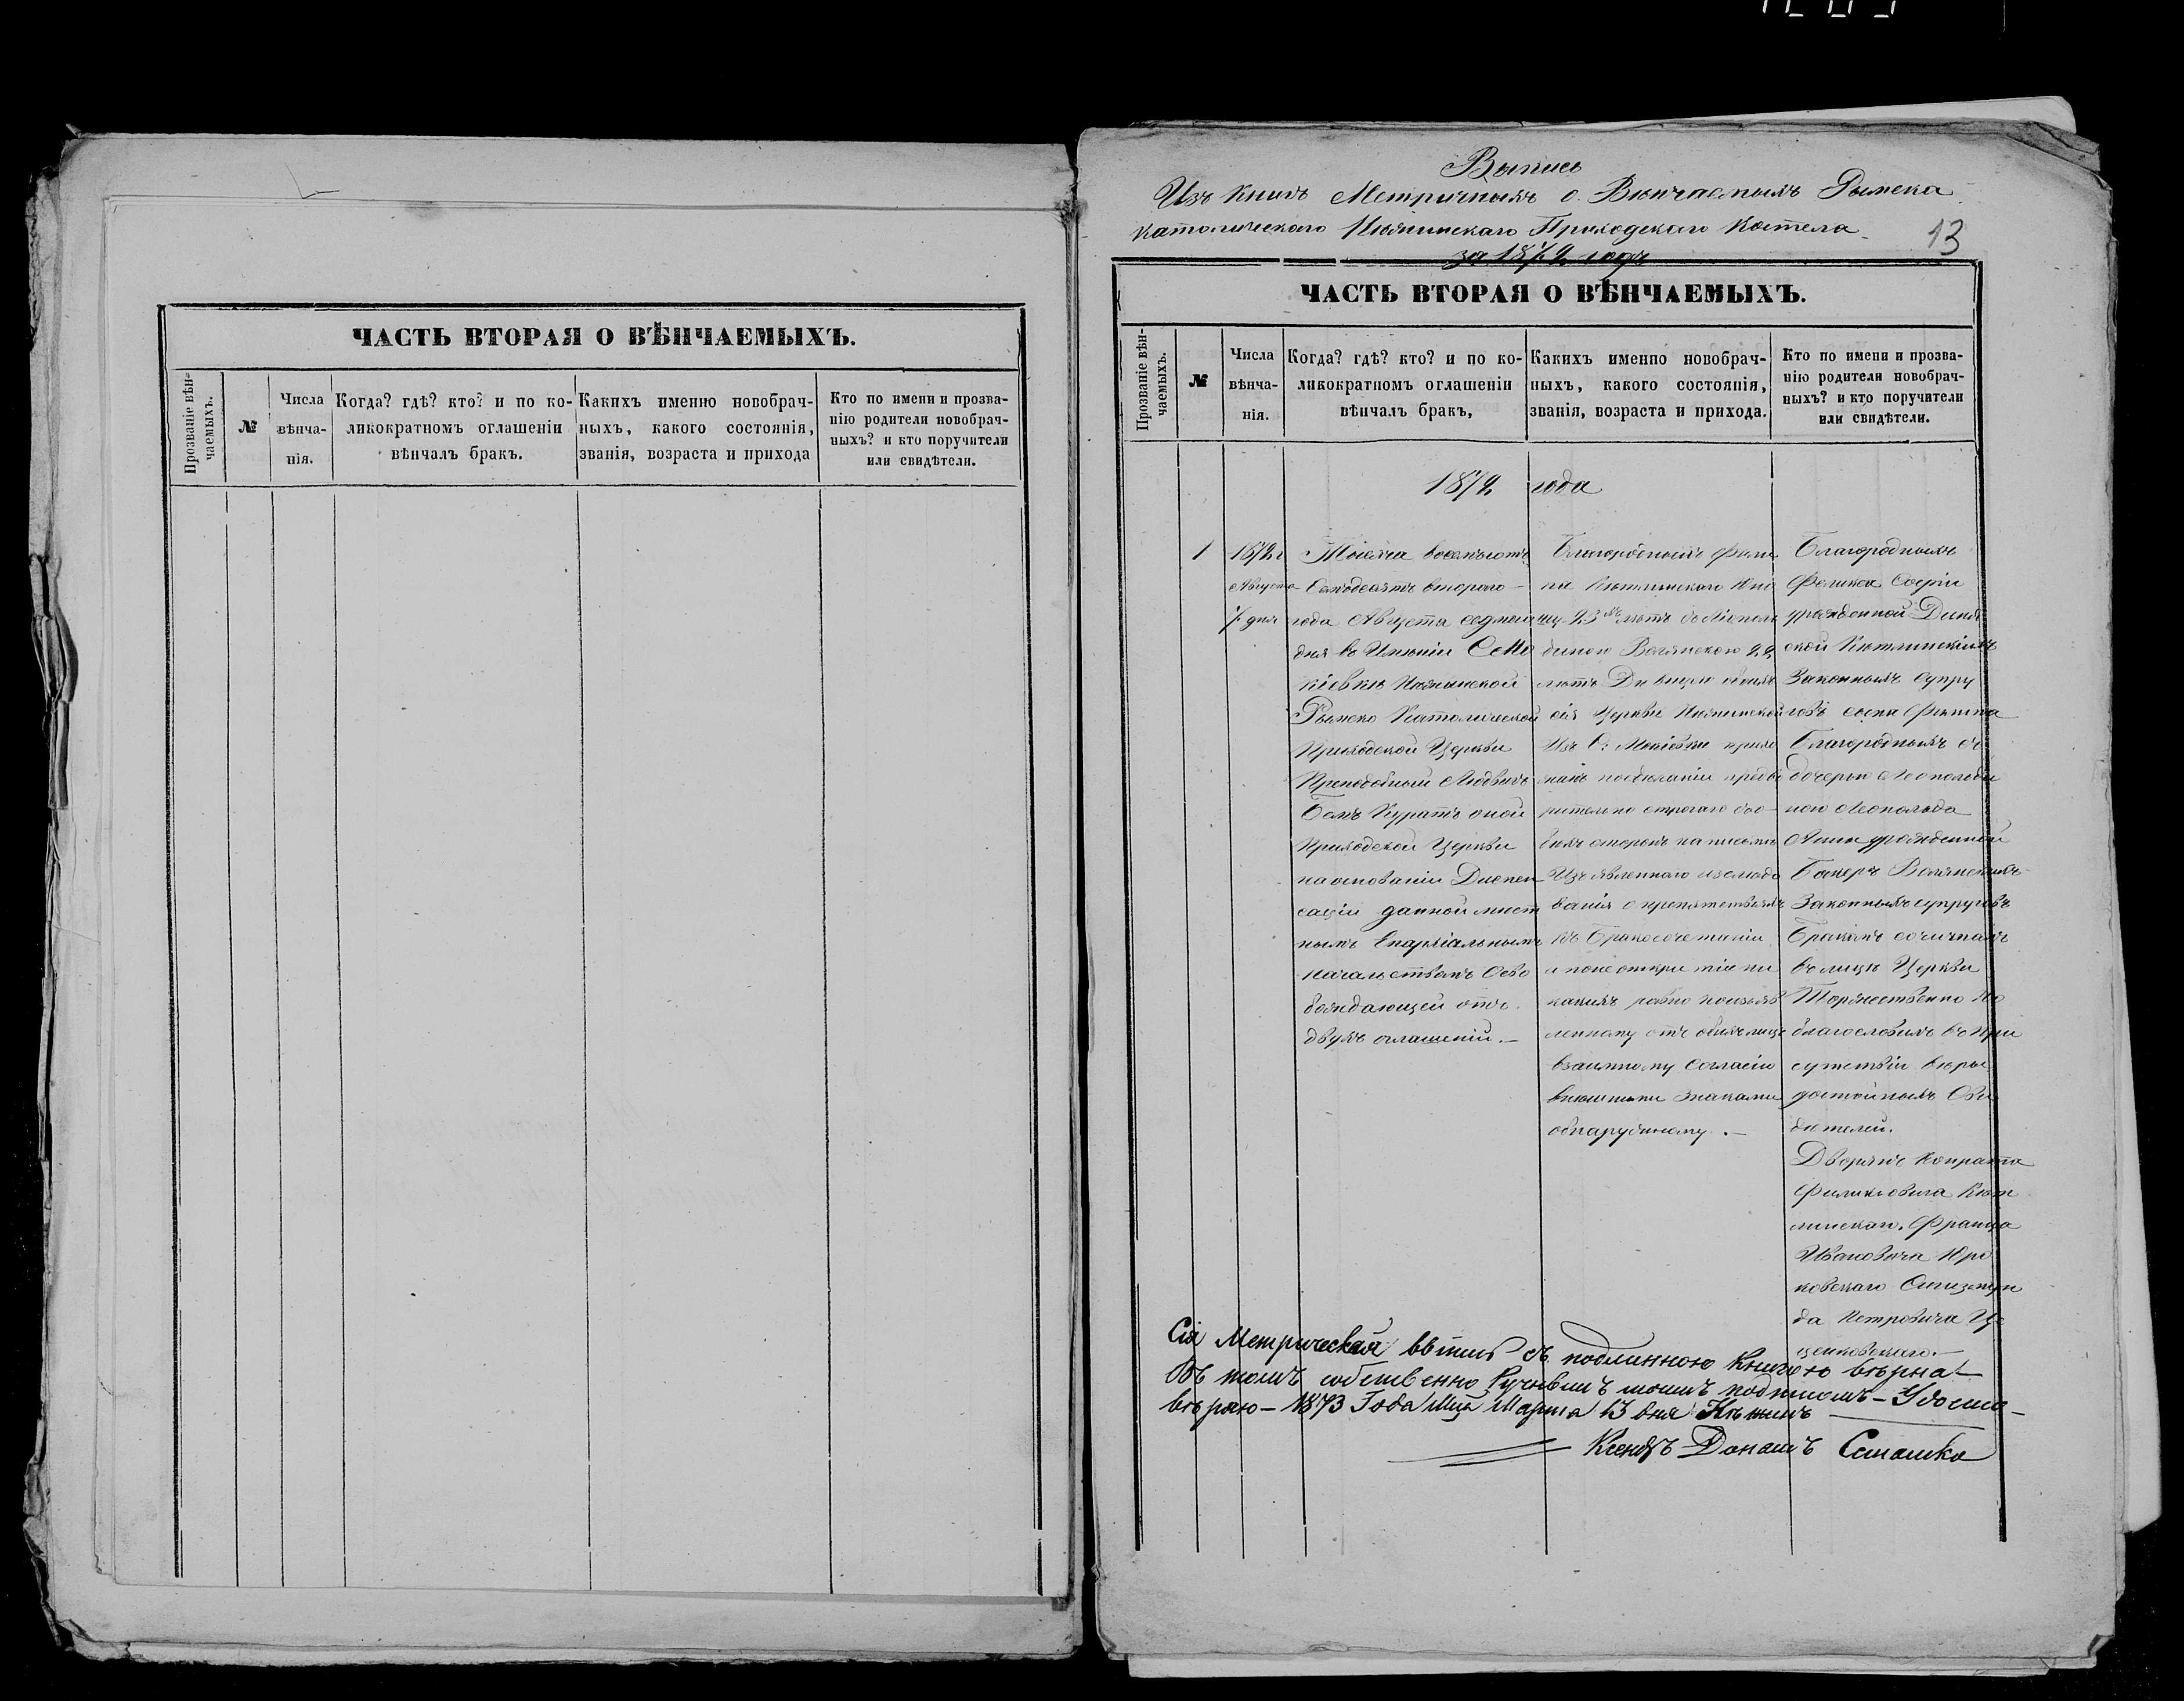 ЧАСТЬ ВТОРАЯ О ВѢНЧАЕМЫХЪ.
Прозваніе вѣн-
чаемыхъ.
№
Числа
вѣнча-
нія.
Когда? гдѣ? кто? и по ко-
ликократномъ оглашеніи
вѣнчалъ бракъ.
Какихъ именно новобрач-
ныхъ, какого состоянія,
званія, возраста и прихода
Кто по имени и прозва-
нію родители новобрач-
ныхъ? и кто поручители
или свидѣтели.
Выпись
Изъ Книгъ Метричныхъ о Вѣнчаемыхъ Римско
католическаго Приходскаго Костела
за 1872 годъ
13
ЧАСТЬ ВТОРАЯ О ВѢНЧАЕМЫХЪ.
Прозваніе вѣн-
чаемыхъ.
№
Числа
вѣнча-
нія.
Когда? гдѣ? кто? и по ко-
ликократномъ оглашеніи
вѣнчалъ бракъ,
Какихъ именно новобрач-
ныхъ, какого состоянія,
званія, возраста и прихода.
Кто по имени и прозва-
нію родители новобрач-
ныхъ? и кто поручители
или свидѣтели.
1872 года
1
1872 г
Августа
7 дня
Тысяча восемьсотъ
семьдесятъ второго
года Августа седмаго
дня въ Имѣніи
Римско Католической
Приходской Церкви
Преподобный Людвигъ
Куратъ оной
Приходской Церкви
на основаніи Диспен
саціи данной мѣст
нымъ Епархіальнымъ
Начальствомъ Осво
бождающей отъ
двухъ оглашеній.—
Благородныхъ Фили
па Кетлинскаго Юно
шу 23 лѣтъ съ Леополь
диною Волянскою 22
лѣтъ Дѣвицею обоихъ
сія Церкви
Изъ С: Мокіовки прихо
жанъ по предва
рительно строгаго обо
ихъ сторонъ на письмѣ
Изъявленнаго изслѣдо
ванія о препятствіяхъ
къ Бракосочетанію
и по неоткрытіе ни
какихъ равно по изъяв
ленному отъ обоихъ лицъ
взаимному Согласію
внѣшними знаками
обнаруженому.—
Благородныхъ
Феликса Софіи
урожденной
Кетлинскихъ
Законныхъ Супру
говъ сына Филипа
Благородныхъ съ
дочерью Леопольди
ною Леопольда
Анны урожденной
Волянскихъ
Законныхъ супруговъ
Бракомъ сочиталъ
въ лицѣ Церкви
Торжественно
благословилъ въ при
сутствіи вѣры
достойныхъ Сви
дѣтелей.
Дворянъ Конрата
Феликсовича Кет
линскаго, Франца
Ивановича
Сигизмун
да Петровича Це
ценковскаго.—
Сія Метрическая выпись съ подлинною Книгою вѣрна
въ томъ собственно ручнымъ моимъ подписомъ — Удосто-
вѣряю — 1873 Года Мца Марта 13 дня
Ксендзъ Донатъ Сташко